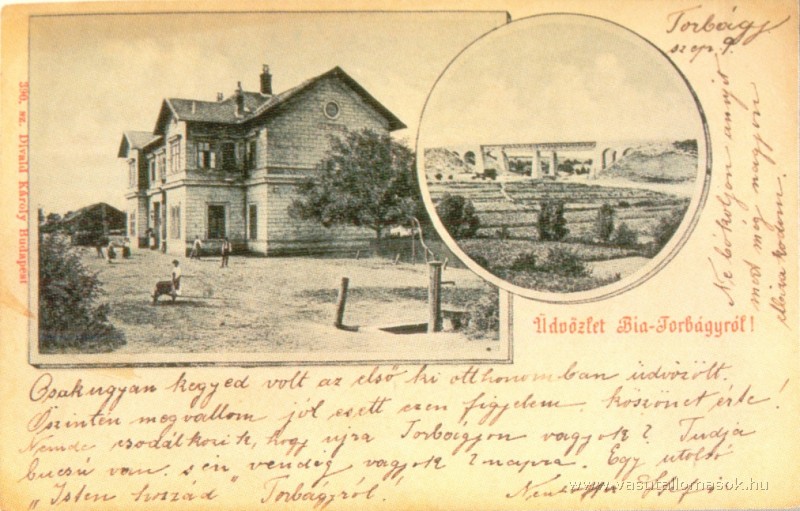 390. sz. Divald Károly Budapest
Torbágy
szep. 9.
Üdvözlet Bia-Torbágyról!
Ne bókoljon annyit
mert még nagyon
elbizakodom.
Csakugyan kegyed volt az első, ki otthonomban üdvözölt.
Őszintén megvallom jól esett ezen figyelem, köszönet érte!
Nemde csodálkozik, hogy ujra Torbágyon vagyok? Tudja
bucsú van. s én vendég vagyok 2 napra. Egy utolsó
„Isten hozzád" Torbágyról!
www.vasutallomasok.hu